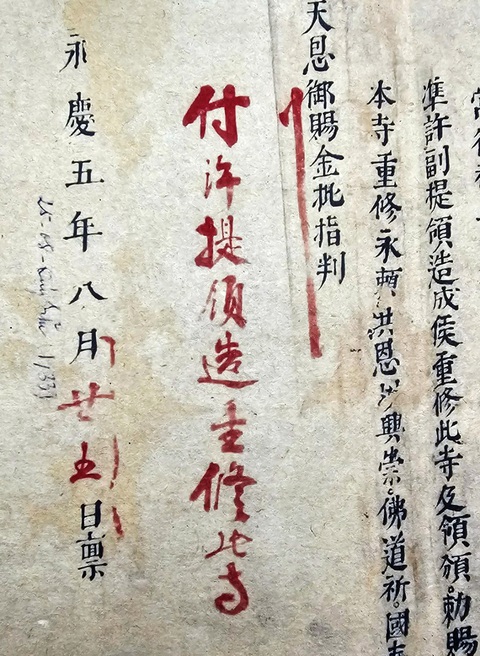 準許副提領造成侯重修此寺及領頒。勅賜
本寺重修永頼洪恩以興崇。佛道祈。國
天恩御賜金批指判
付許提領造重修此寺
永慶五年八月廿五日稟